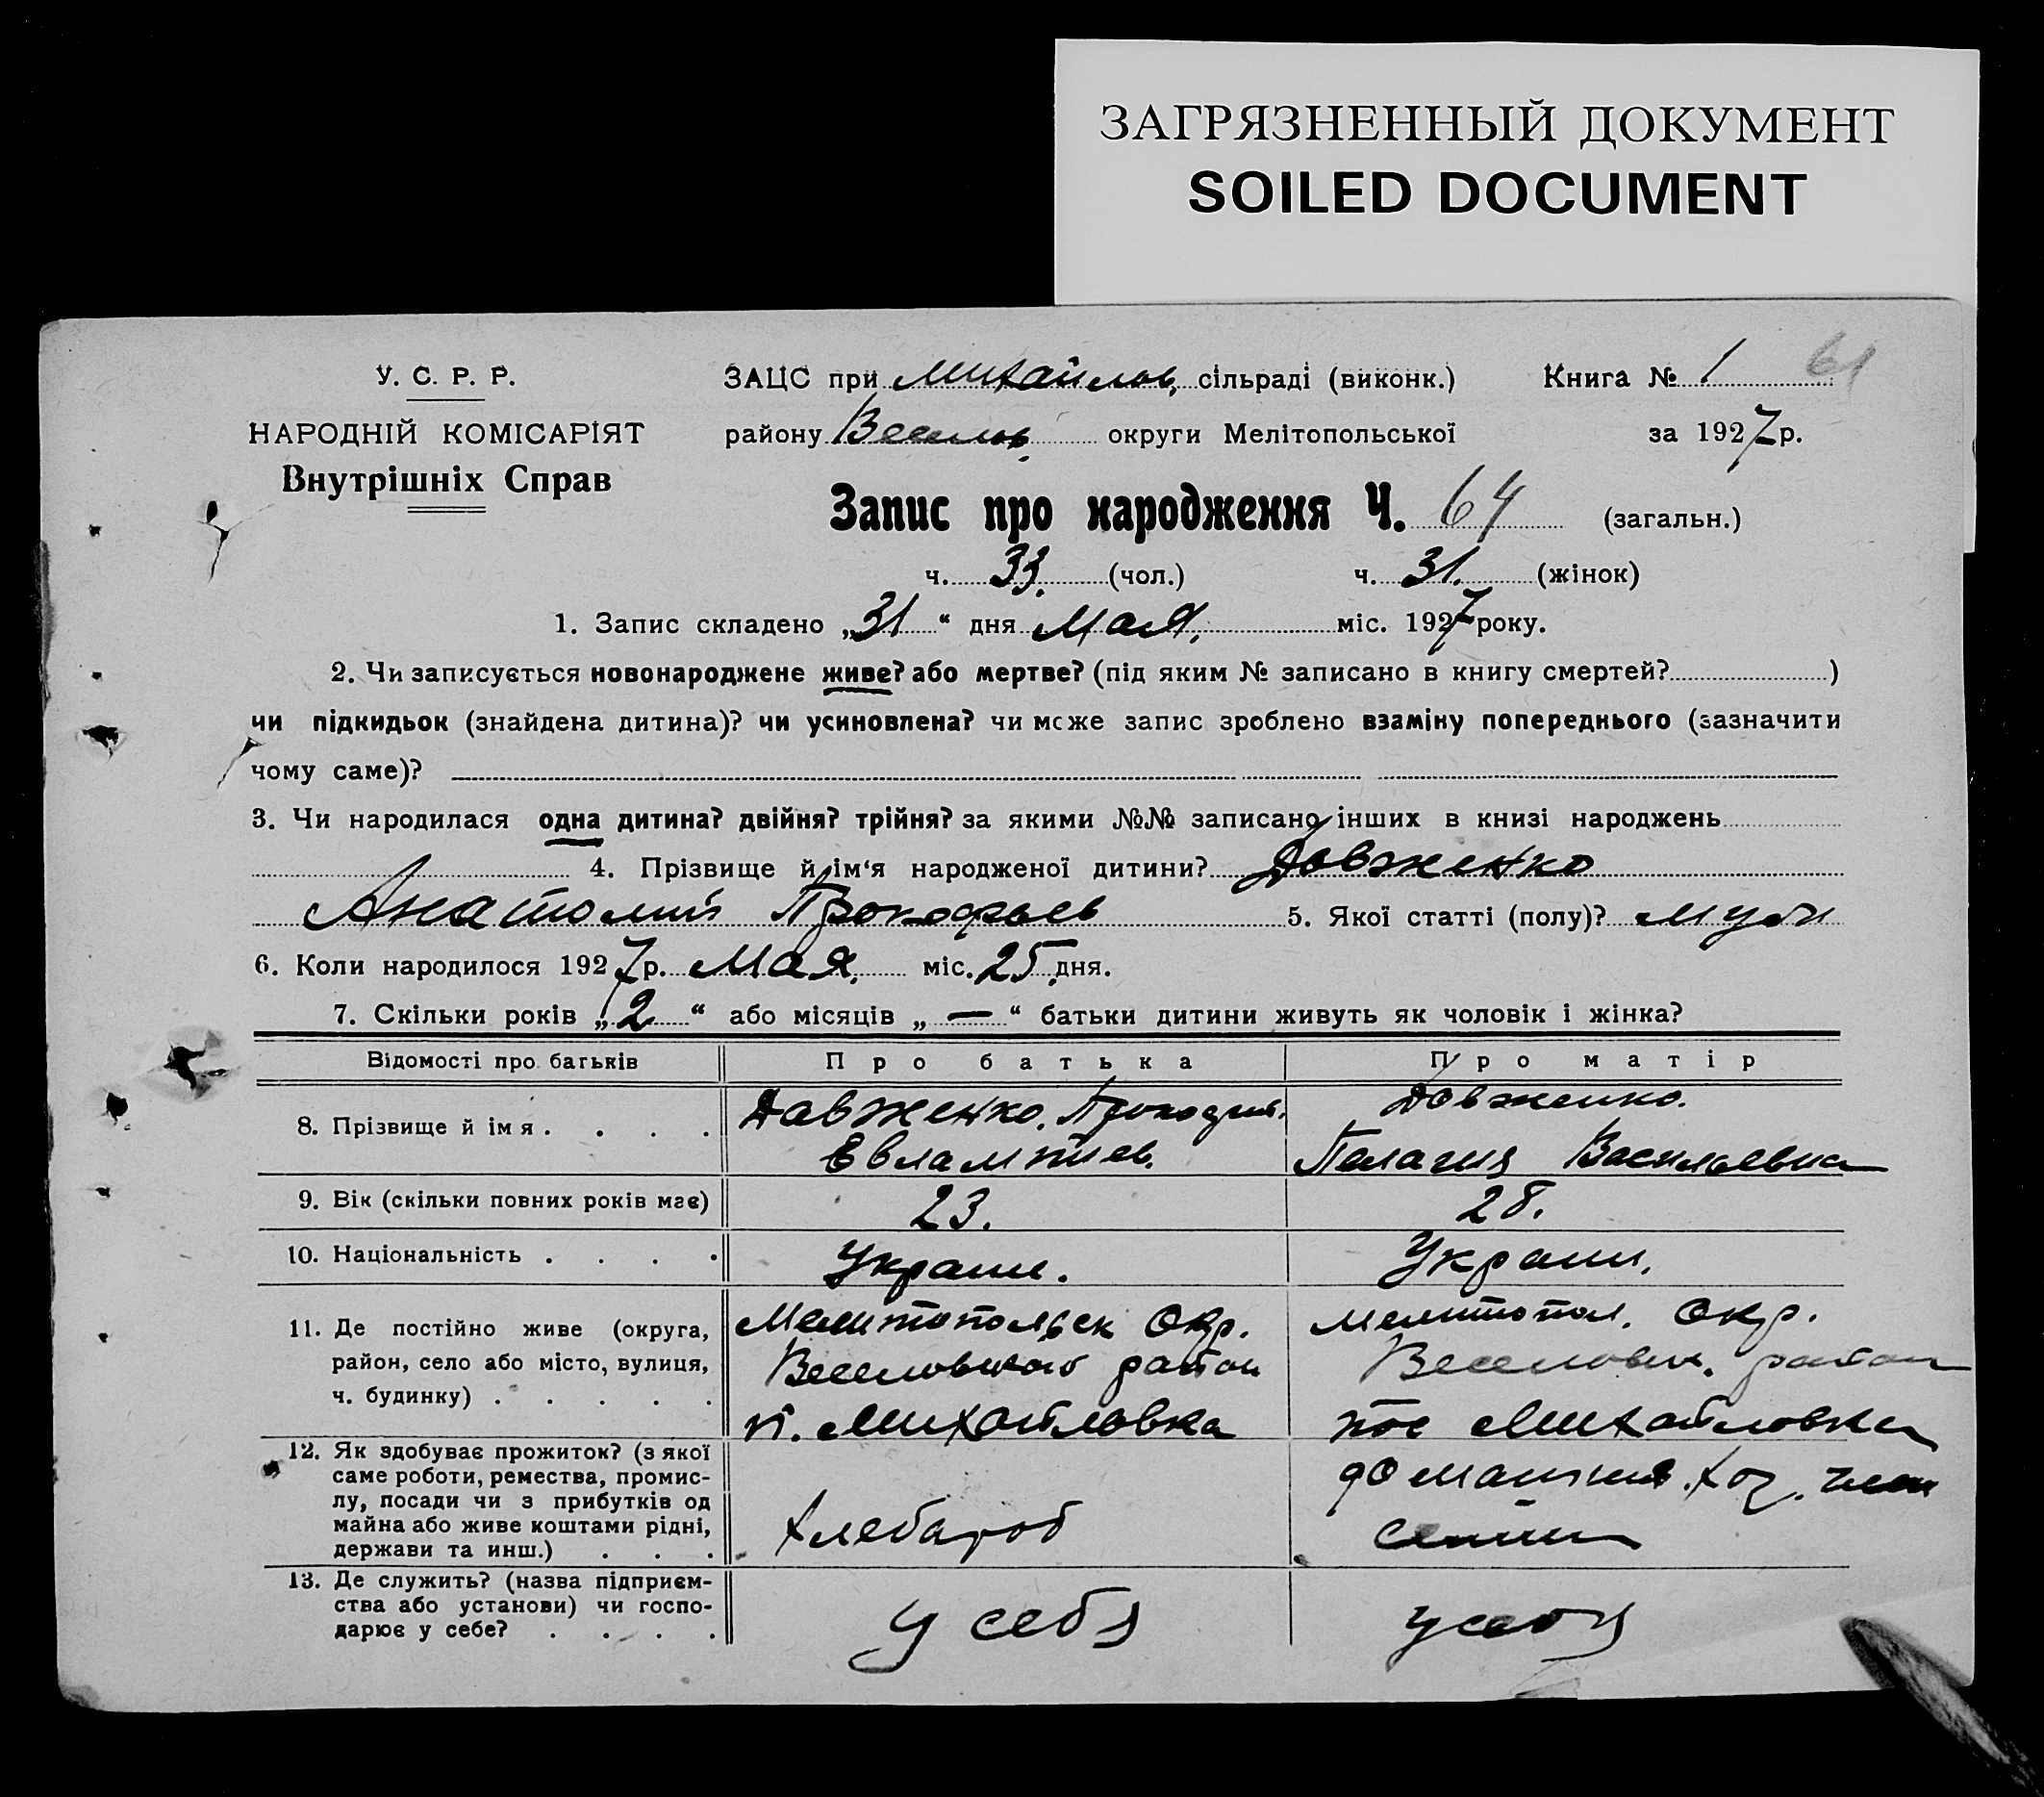 ЗАГРЯЗНЕННЫЙ ДОКУМЕНТ
SOILED DOCUMENT
У. С. Р. Р.
НАРОДНІЙ КОМІСАРІЯТ
Внутрішніх Справ
ЗАЦС при Михайлов. сільраді (виконк.) Книга № 1 61
району Веселов. округи Мелітопольської за 1927 р.
Запис про народження Ч. 64 (загальн.)
ч. 33. (чол.) ч. 31. (жінок)
1. Запис складено „31“ дня Мая. міс. 1927 року.
2. Чи записується новонароджене живе? або мертве? (під яким № записано в книгу смертей? )
чи підкидьок (знайдена дитина)? чи усиновлена? чи може запис зроблено взаміну попереднього (зазначити
чому саме)?
3. Чи народилася одна дитина? двійня? трійня? за якими №№ записано інших в книзі народжень
4. Прізвище й ім‘я народженої дитини? Довженко
Анатолий Прокофьев 5. Якої статті (полу)? муж
6. Коли народилося 1927 р. Мая. міс. 25. дня.
7. Скільки років „2“ або місяців „—“ батьки дитини живуть як чоловік і жінка?
Відомості про батьків Про батька Про матір
8. Прізвище й ім я . . . . Довженко. Прокофий. Довженко.
Евлампиев. Пелагия Васильевна
9. Вік (скільки повних років має) 23. 28.
10. Національність . . . . Украин. Украин.
11. Де постійно живе (округа, Мелитопольск Окр. Мелитопол. Окр.
район, село або місто, вулиця, Веселовского район Веселовск. район
ч. будинку) . . . . . п. Михайловка пос Михайловка
12. Як здобуває прожиток? (з якої
саме роботи, ремества, промис-
лу, посади чи з прибутків од
майна або живе коштами рідні,
держави та инш.) . . . Хлебароб домашняя. хоз. член
семьи
13. Де служить? (назва підприєм-
ства або установи) чи госпо-
дарює у себе? . . . . у себя у себя